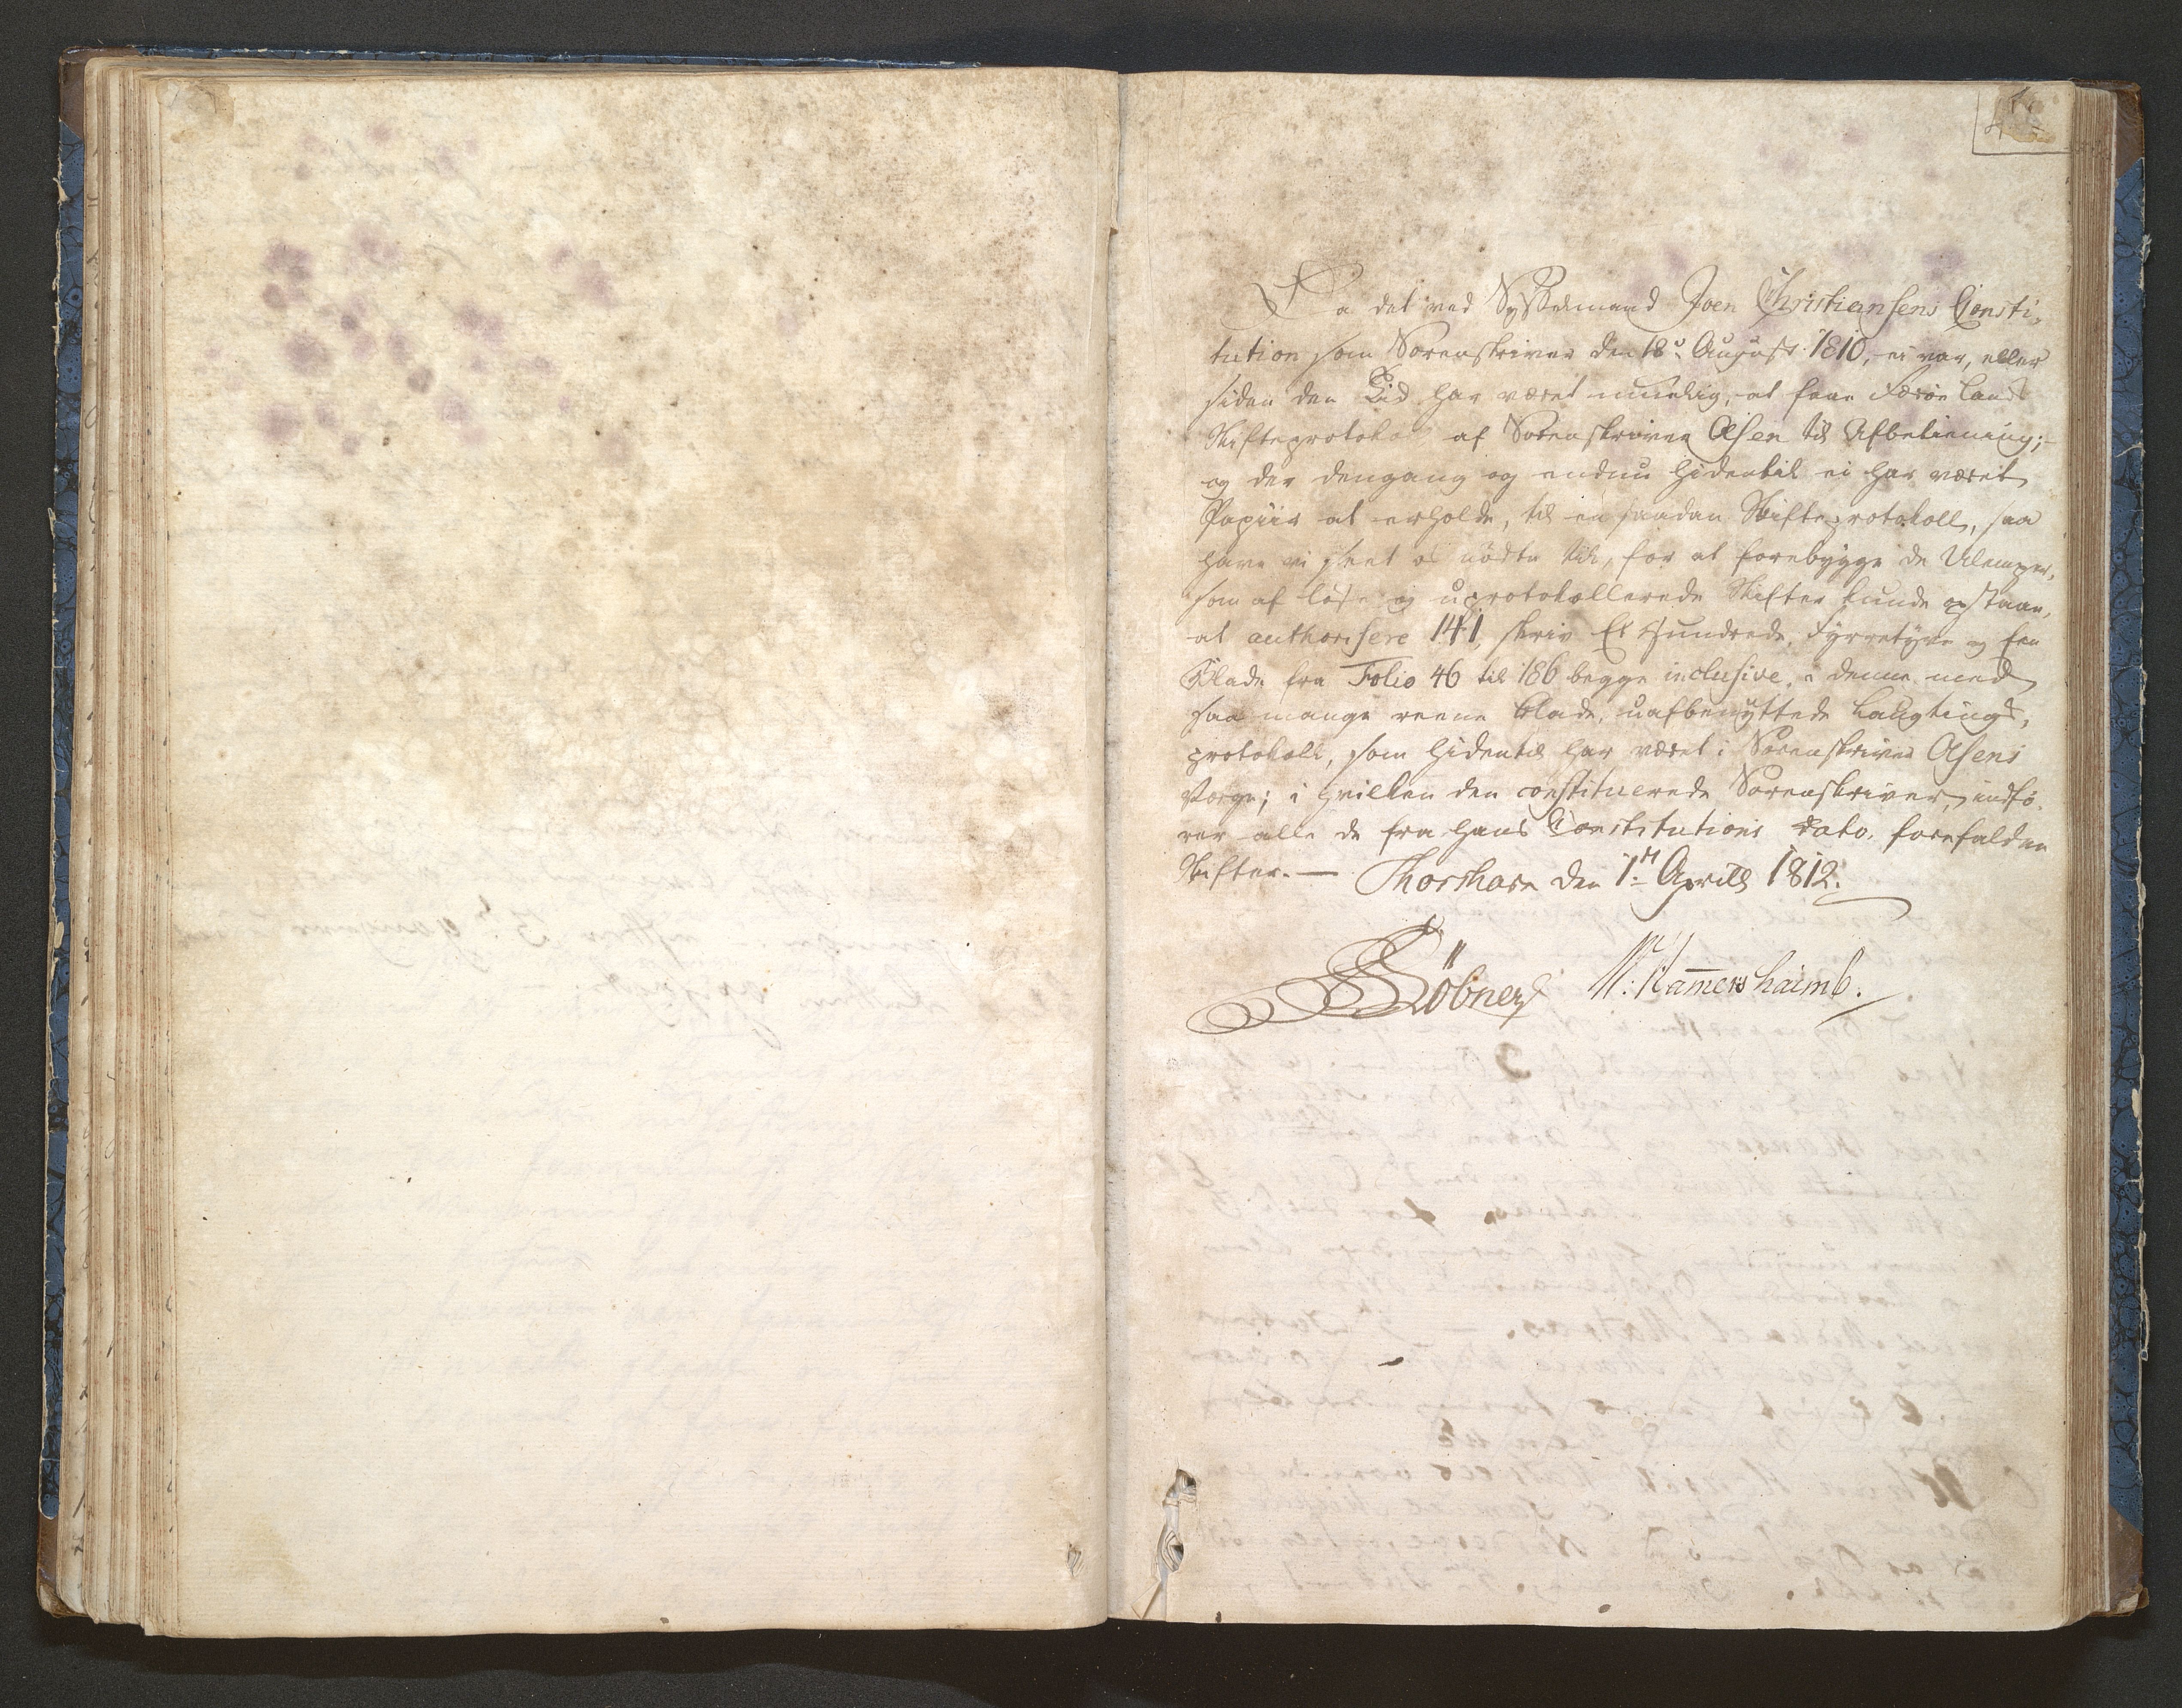 Da det ved Sysselmand Joen Christiansens Consti-
tution som Sorenskriver den 18de August 1810, ei var, eller
siden den Tid har været muelig, at faae Færøe Lands
Skifteprotokoll af Sorenskriver Olsen til Afbetiening;
og der dengang og endnu hidentil ei har været
Papiir at erholde, til en saadan Skifteprotokoll, saa
have vi seet os nødte til, for at forebygge de Ulemper,
som af løse og uprotokollerede Skifter kunde opstaae,
at authorisere 141, skriv Et Hundrede, Fyrretyve og Een
Blade fra Folio 46 til 186 begge inclusive, i denne med
saa mange reene Blade, uafbenyttede Laugtings-
protokoll, som hidentil har været i Sorenskriver Olsens
Værge; i hvilken den constituerede Sorenskriver, indfø-
rer alle de fra hans Constitutions Dato, forefaldne
Skifter. — Thorshavn den 1te Aprill 1812.
Löbner W: Hamershaimb.